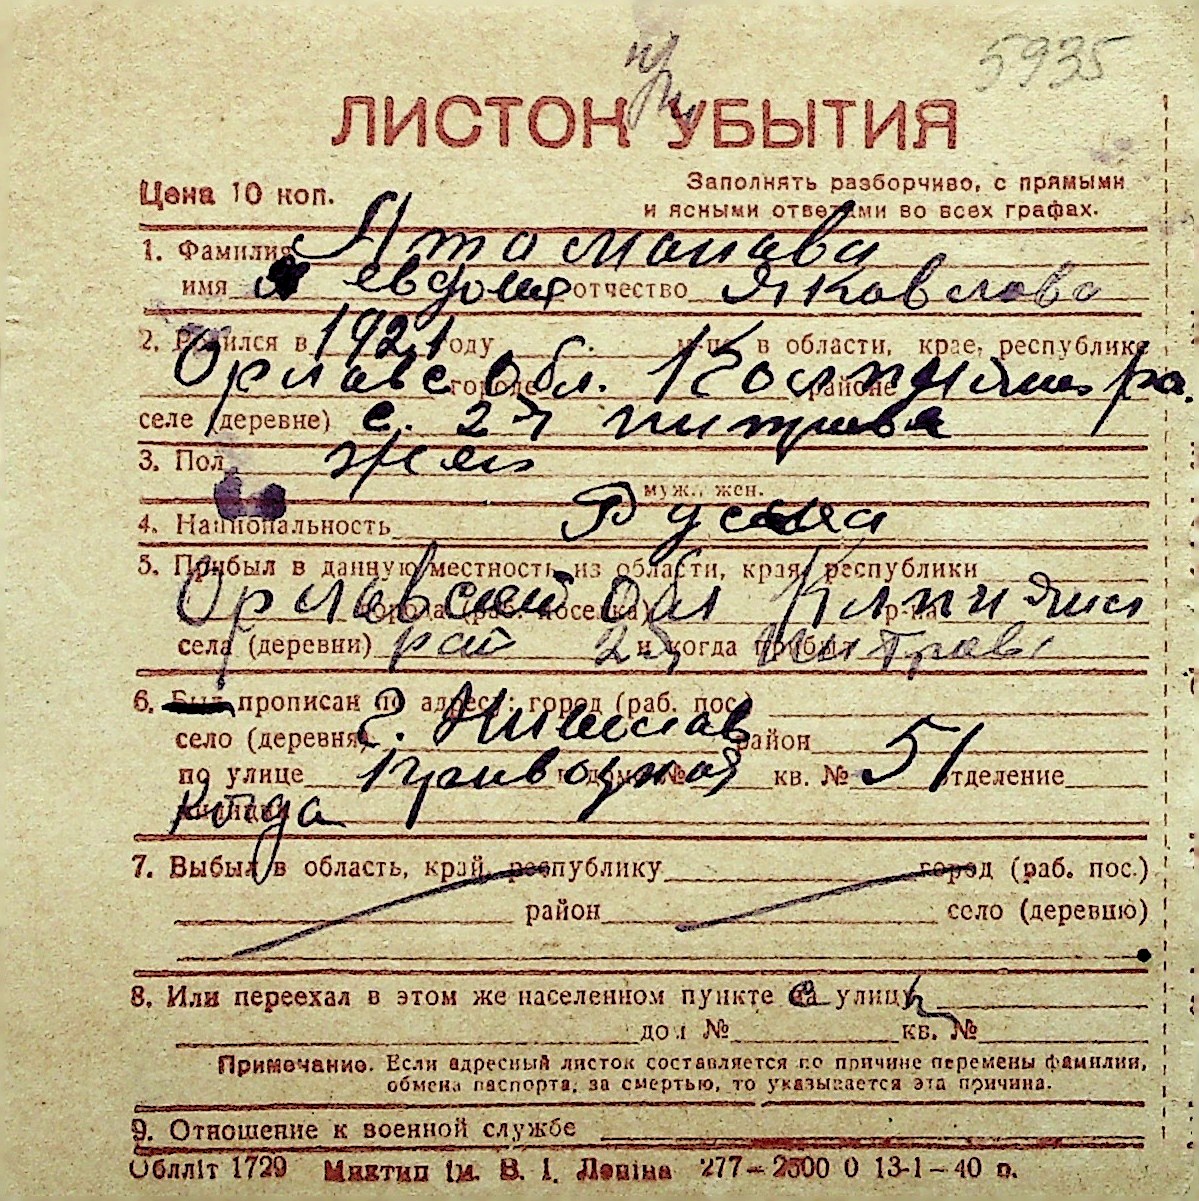 5935
ЛИСТОК УБЫТИЯ
Цена 10 коп.
Заполнять разборчиво, с прямыми
и ясными ответами во всех графах.
1. Фамилия Атаманава
имя Евдокия отчество Яковлева
2. Родился в 1921 году м-це в области, крае, республике
Орлавс обл. городе районе ра.
селе (деревне) с. 2й
3. Пол жен
муж., жен.
4. Национальность Руская
5. Прибыл в данную местность из области, края, республики
Орлавской обл города (раб. поселка) р-на
села (деревни) рай 2й и когда прибыл
6. Был прописан по адресу: город (раб. пос.)
село (деревня) г. район
по улице и дома № кв. № 51 отделение
милиции
7. Выбыл в область, край, республику город (раб. пос.)
район село (деревню)
8. Или переехал в этом же населенном пункте на улицу
дом № кв. №
Примечание. Если адресный листок составляется по причине перемены фамилии,
обмена паспорта, за смертью, то указывается эта причина.
9. Отношение к военной службе
Облліт 1729 Миктип ім. В. І. Леніна 277—2500 0 13-1—40 п.